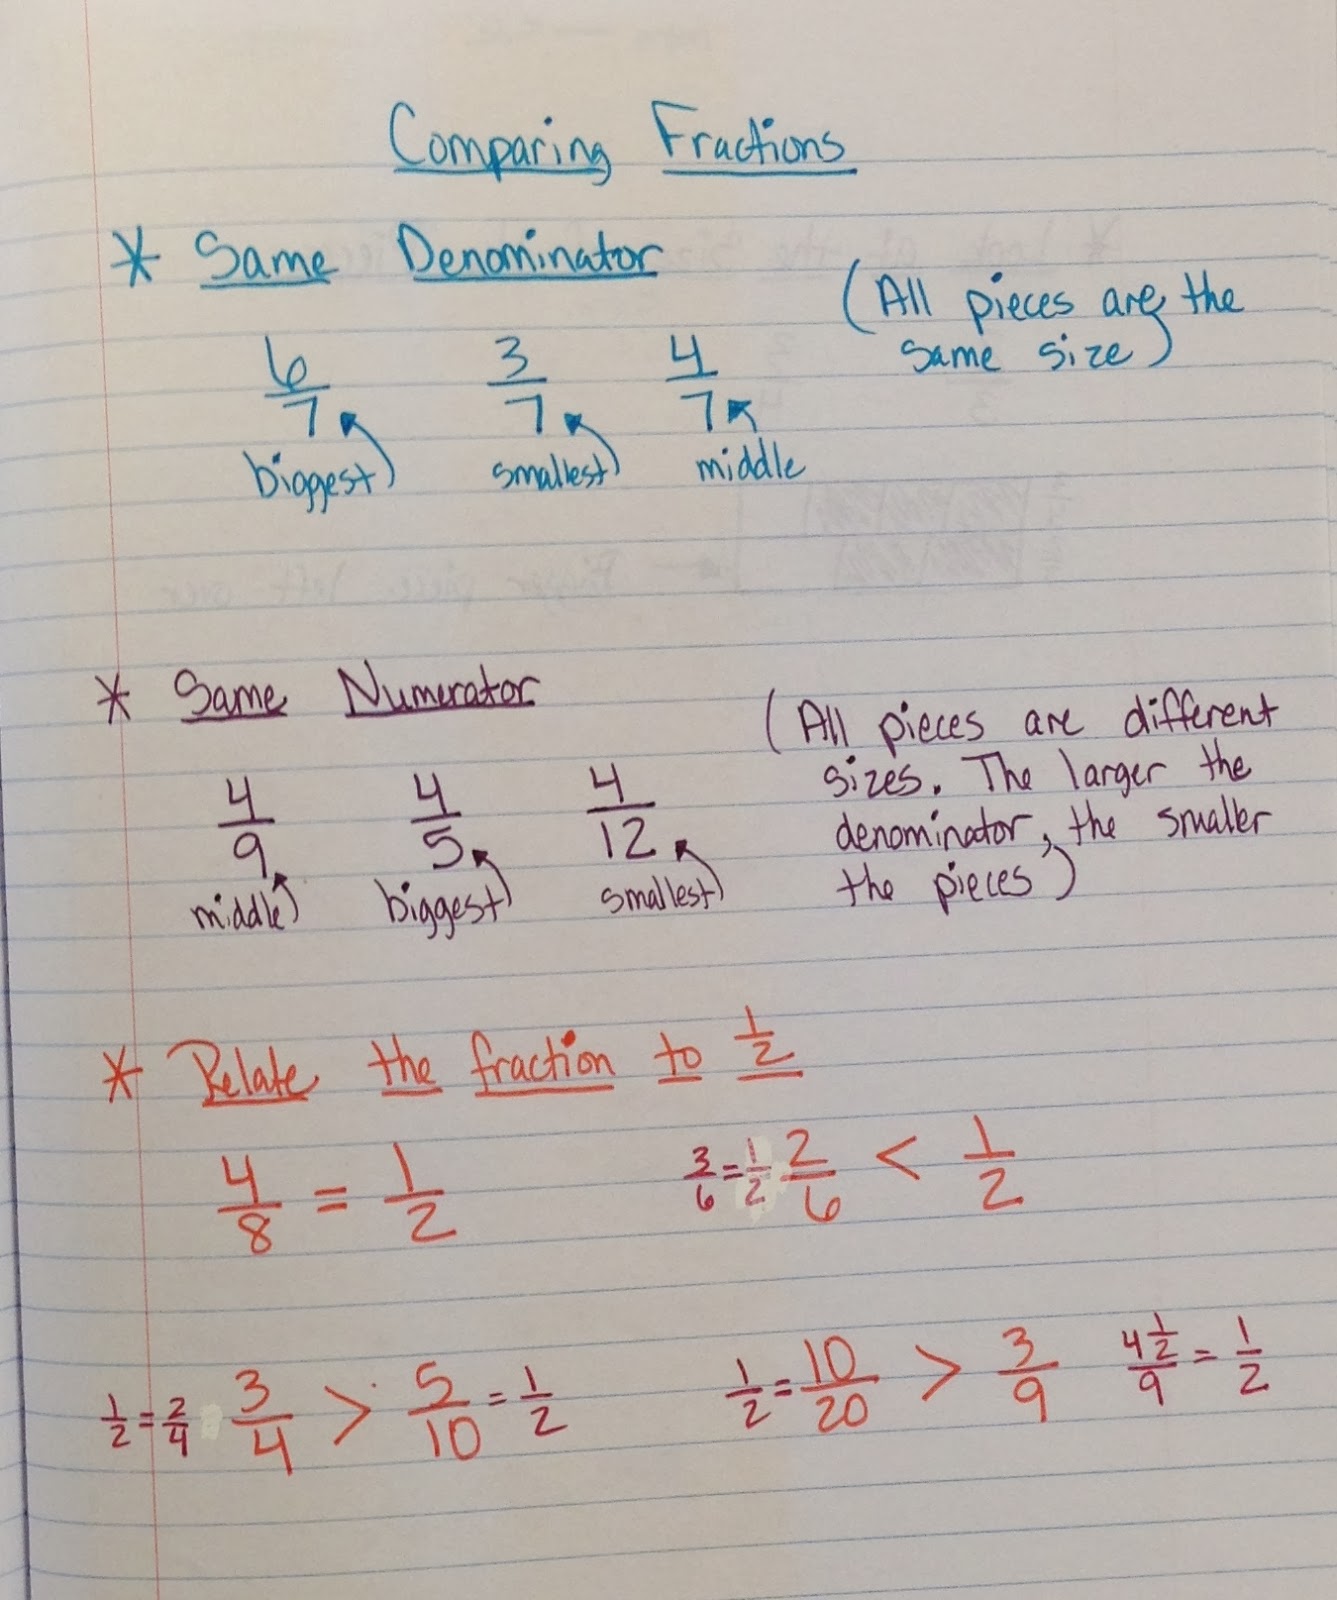 Comparing Fractions
* Same Denominator
(All pieces are the
same size)
6/7 3/7 4/7
biggest smallest middle
* Same Numerator
(All pieces are different
sizes. The larger the
denominator, the smaller
the pieces)
4/9 4/5 4/12
middle biggest smallest
* Relate the fraction to 1/2
4/8 = 1/2 3/6 = 1/2 2/6 < 1/2
1/2 = 2/4 3/4 > 5/10 = 1/2 1/2 = 10/20 > 3/9 4 1/2/9 = 1/2